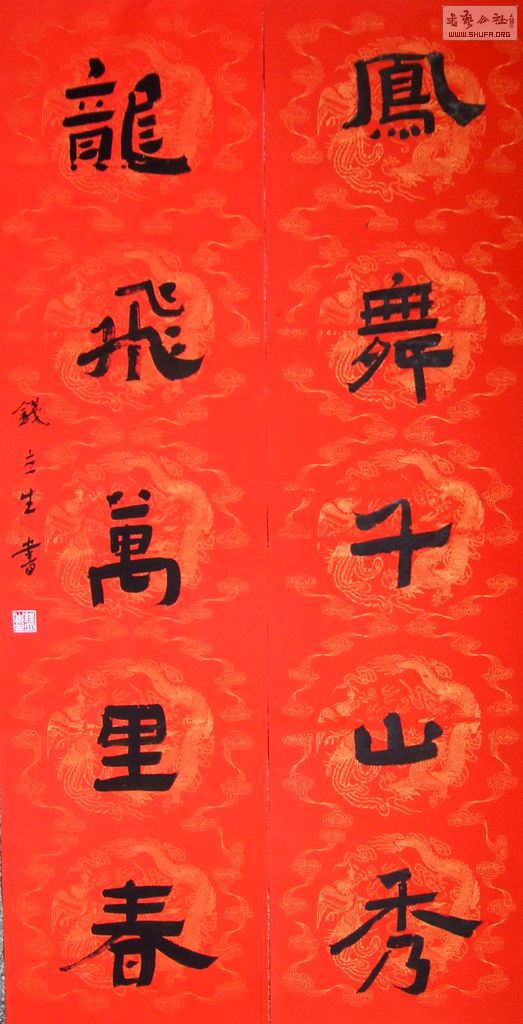 鳳舞千山秀
龍飛萬里春
錢立生書
書藝公社
WWW.SHUFA.ORG